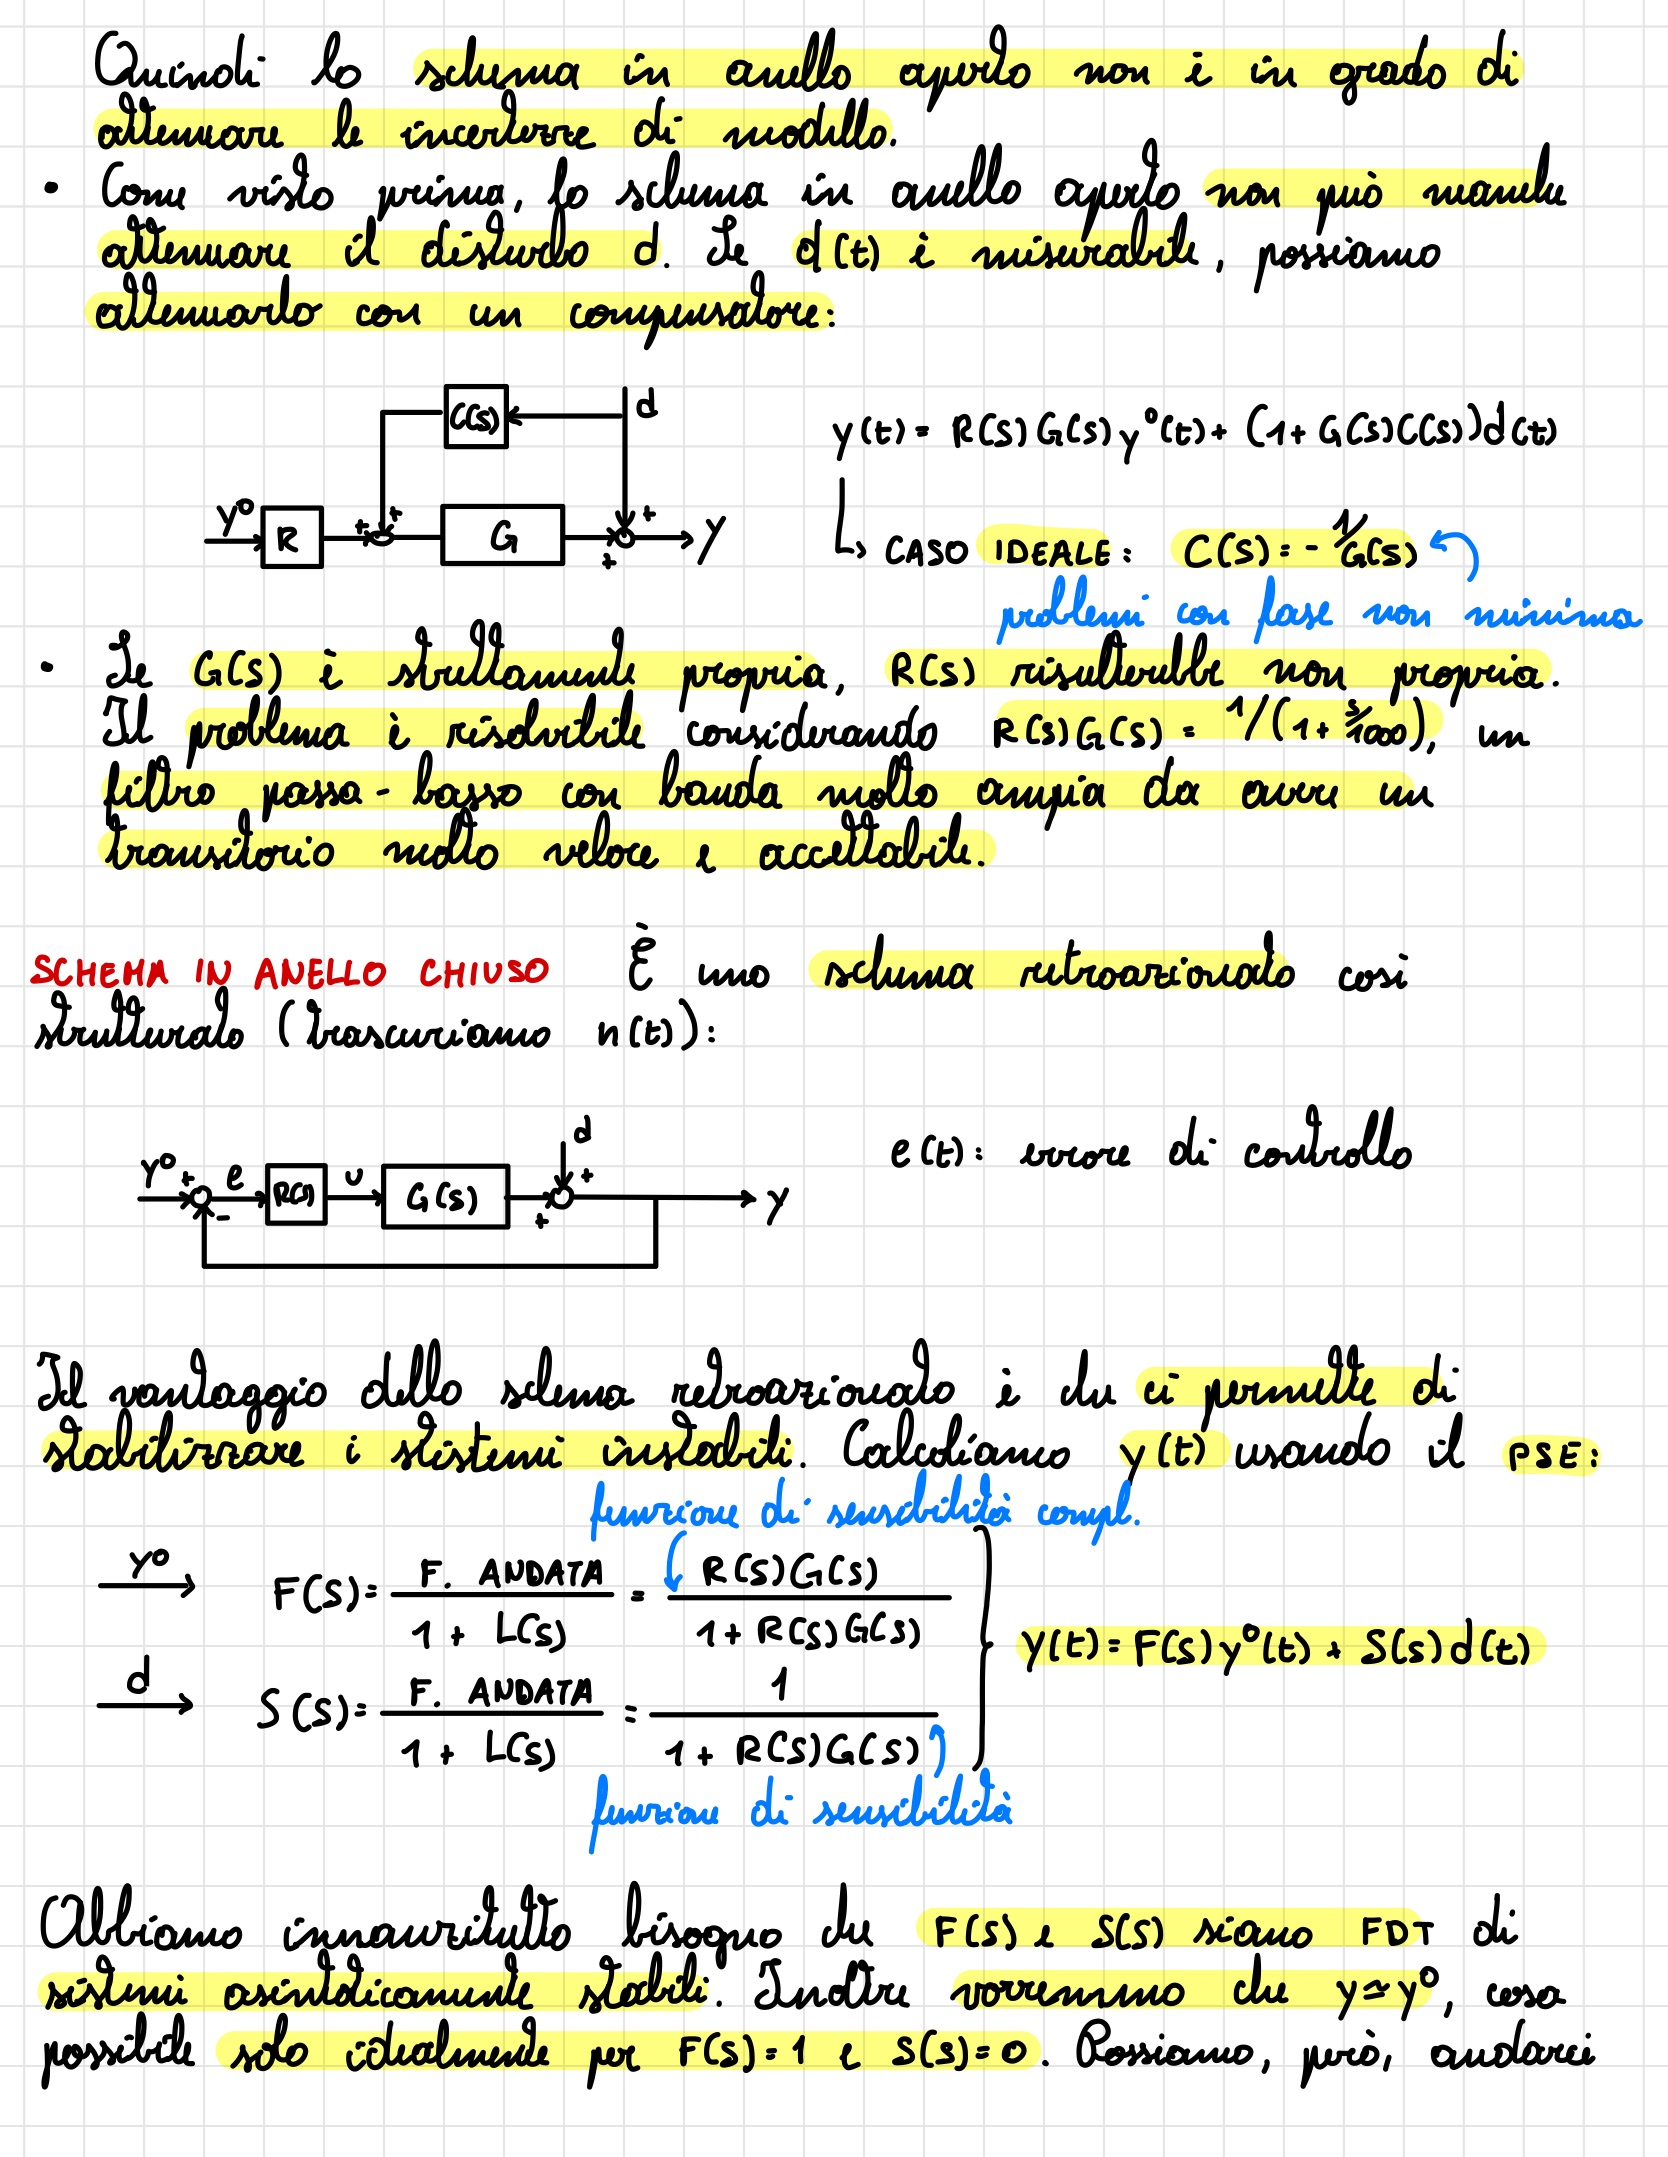 Quindi lo schema in anello aperto non è in grado di
attenuare le incertezze di modello.
• Come visto prima, lo schema in anello aperto non può manche
attenuare il disturbo d. Se d(t) è misurabile, possiamo
attenuarlo con un compensatore:
C(s) d
y(t) = R(s)G(s)y°(t) + (1+G(s)C(s))d(t)
y° R + + G + + y
↳ CASO IDEALE: C(s) = - 1/G(s)
problemi con fase non minima
• Se G(s) è strettamente propria, R(s) risulterebbe non propria.
Il problema è risolvibile considerando R(s)G(s) = 1/(1+ s/1000), un
filtro passa-basso con banda molto ampia da avere un
transitorio molto veloce e accettabile.
SCHEMA IN ANELLO CHIUSO È uno schema retroazionato così
strutturato (trascuriamo n(t)):
d
e(t): errore di controllo
y° + - e R(s) u G(s) + + y
Il vantaggio dello schema retroazionato è che ci permette di
stabilizzare i sistemi instabili. Calcoliamo y(t) usando il PSE:
funzione di sensibilità compl.
y° → F(s) = F. ANDATA / 1 + L(s) = R(s)G(s) / 1 + R(s)G(s)
y(t) = F(s)y°(t) + S(s)d(t)
d → S(s) = F. ANDATA / 1 + L(s) = 1 / 1 + R(s)G(s)
funzione di sensibilità
Abbiamo innanzitutto bisogno che F(s) e S(s) siano FDT di
sistemi asintoticamente stabili. Inoltre vorremmo che y≃y°, cosa
possibile solo idealmente per F(s)=1 e S(s)=0. Possiamo, però, andarci